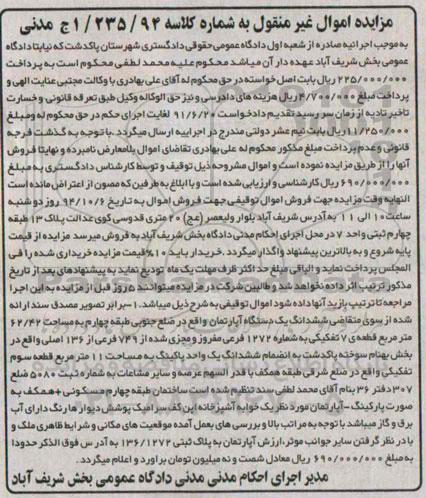 مزایده اموال غیر منقول به شماره کلاسه ۹۴ / ۲۳۵ / ۱ ج مدنی
به موجب اجرائیه صادره از شعبه اول دادگاه عمومی حقوقی دادگستری شهرستان پاکدشت که نیابتا دادگاه
عمومی بخش شریف آباد عهده دار آن میباشد محکوم علیه محمد لطفی محکوم است به پرداخت
۲۲۵/۰۰۰/۰۰۰ ریال بابت اصل خواسته در حق محکوم له آقای علی بهادری با وکالت مجتبی عنایت الهی و
پرداخت مبلغ ۴/۷۰۰/۰۰۰ ریال هزینه های دادرسی و نیز حق الوکاله وکیل طبق تعرفه قانونی و خسارت
تاخیر تادیه از زمان سر رسید تقدیم دادخواست ۹۱/۶/۲۰ لغایت اجرای حکم در حق محکوم له و مبلغ
۱۱/۲۵۰/۰۰۰ ریال بابت نیم عشر دولتی مندرج در اجراییه ارسال میگردد. با توجه به گذشت فرجه
قانونی و عدم پرداخت مبلغ مذکور محکوم له علی بهادری تقاضای اموال بلامعارض نامبرده و نهایتا فروش
آنها را از طریق مزایده نموده است و اموال مشروحه ذیل توقیف و توسط کارشناس دادگستری به مبلغ
۶۹۰/۰۰۰/۰۰۰ ریال کارشناسی و ارزیابی شده است و با ابلاغ به طرفین که مصون از اعتراض مانده است
النهایه وقت مزایده جهت فروش اموال توقیفی جهت فروش اموال به تاریخ ۹۴/۱۰/۶ روز دو شنبه
ساعت ۱۰ الی ۱۱ به آدرس شریف آباد بلوار ولیعصر (عج) ۲۰ متری قدوسی کوی عدالت پلاک ۱۳ طبقه
چهارم ثبتی واحد ۷ در محل اجرای احکام مدنی دادگاه بخش شریف آباد به فروش میرسد مزایده از قیمت
پایه شروع و به بالاترین پیشنهاد واگذار میگردد. خریدار باید ۱۰٪ قیمت مزایده خریداری شده را فی
المجلس پرداخت نماید و الباقی مبلغ حد اکثر ظرف مهلت یک ماه تودیع نماید به پیشنهادهای بعد از تاریخ
مذکور ترتیب اثر داده نخواهد شد و طالبین شرکت در مزایده میتوانند ۵ روز قبل از مزایده به این اجرا
مراجعه تا ترتیب بازدید آنها داده شود اموال توقیفی به شرح ذیل میباشد. ۱-برابر تصویر مصدق سند ارائه
شده از سوی متقاضی ششدانگ یک دستگاه آپارتمان واقع در ضلع جنوبی طبقه چهارم به مساحت ۶۲/۴۲
متر مربع قطعه ۷ تفکیکی به شماره ۱۲۷۲ فرعی مفروز و مجزی شده از ۷۴۹ فرعی از ۱۳۶ اصلی واقع در
بخش بهنام سوخته پاکدشت به انضمام ششدانگ یک واحد پاکینگ به مساحت ۱۱ متر مربع قطعه سوم
تفکیکی واقع در ضلع شرقی طبقه همکف با قدر السهم عرصه و سایر مشاعات به شماره ثبت ۵۰۸۰ ضلع
۳۰۷ دفتر ۳۶ بنام آقای محمد لطفی سند تنظیم شده است ساختمان طبقه چهارم مسکونی +همکف به
صورت پارکینگ-آپارتمان مورد نظر یک خوابه آشپزخانه اپن کف سرامیک پوشش دیوار ها رنگ دارای آب
برق و گاز میباشد با توجه به مراتب بالا و بررسی های بعمل آمده موقعیت های مکانی و شرایط ظاهری ملک و
با در نظر گرفتن سایر جوانب موثر، ارزش آپارتمان به پلاک ثبتی ۱۳۶/۱۲۷۲ به آدرس فوق الذکر حدودا
به مبلغ ۶۹۰/۰۰۰/۰۰۰ ریال معادل شصت و نه میلیون تومان براورد و اعلام میگردد.
مدیر اجرای احکام مدنی مدنی دادگاه عمومی بخش شریف آباد